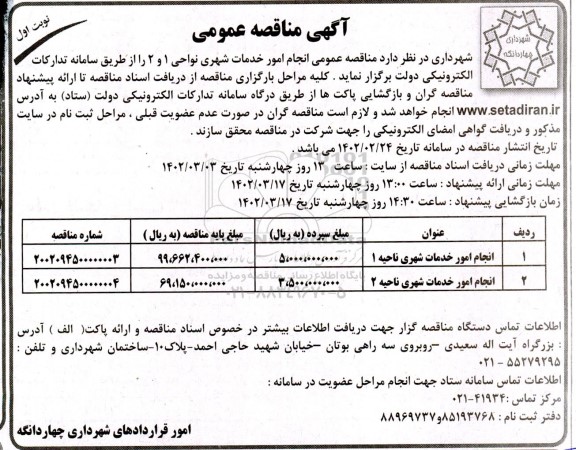 نوبت اول
شهرداری
چهاردانگه
آگهی مناقصه عمومی
شهرداری در نظر دارد مناقصه عمومی انجام امور خدمات شهری نواحی ۱ و ۲ را از طریق سامانه تدارکات
الکترونیکی دولت برگزار نماید . کلیه مراحل بارگزاری مناقصه از دریافت اسناد مناقصه تا ارائه پیشنهاد
مناقصه گران و بازگشایی پاکت ها از طریق درگاه سامانه تدارکات الکترونیکی دولت (ستاد) به آدرس
www.setadiran.ir انجام خواهد شد و لازم است مناقصه گران در صورت عدم عضویت قبلی ، مراحل ثبت نام در سایت
مذکور و دریافت گواهی امضای الکترونیکی را جهت شرکت در مناقصه محقق سازند .
تاریخ انتشار مناقصه در سامانه تاریخ ۱۴۰۲/۰۲/۲۴ می باشد .
مهلت زمانی دریافت اسناد مناقصه از سایت : ساعت ۱۳ روز چهارشنبه تاریخ ۱۴۰۲/۰۳/۰۳
مهلت زمانی ارائه پیشنهاد : ساعت ۱۳:۰۰ روز چهارشنبه تاریخ ۱۴۰۲/۰۳/۱۷
زمان بازگشایی پیشنهاد : ساعت ۱۴:۳۰ روز چهارشنبه تاریخ ۱۴۰۲/۰۳/۱۷
ردیف عنوان مبلغ سپرده (به ریال) مبلغ پایه مناقصه (به ریال ) شماره مناقصه
۱ انجام امور خدمات شهری ناحیه ۱ ۵،۰۰۰،۰۰۰،۰۰۰ ۹۹،۶۶۲،۴۰۰،۰۰۰ ۲۰۰۲۰۹۴۵۰۰۰۰۰۰۰۳
۲ انجام امور خدمات شهری ناحیه ۲ ۳،۵۰۰،۰۰۰،۰۰۰ ۶۹،۱۵۰،۰۰۰،۰۰۰ ۲۰۰۲۰۹۴۵۰۰۰۰۰۰۰۴
پایگاه اطلاع رسانی مناقصه و مزایده
اطلاعات تماس دستگاه مناقصه گزار جهت دریافت اطلاعات بیشتر در خصوص اسناد مناقصه و ارائه پاکت( الف ) آدرس
: بزرگراه آیت اله سعیدی –روبروی سه راهی بوتان –خیابان شهید حاجی احمد-پلاک۱۰-ساختمان شهرداری و تلفن :
۵۵۲۷۹۲۹۵ - ۰۲۱
اطلاعات تماس سامانه ستاد جهت انجام مراحل عضویت در سامانه :
مرکز تماس :۴۱۹۳۴-۰۲۱
دفتر ثبت نام : ۸۵۱۹۳۷۶۸و۸۸۹۶۹۷۳۷
امور قراردادهای شهرداری چهاردانگه